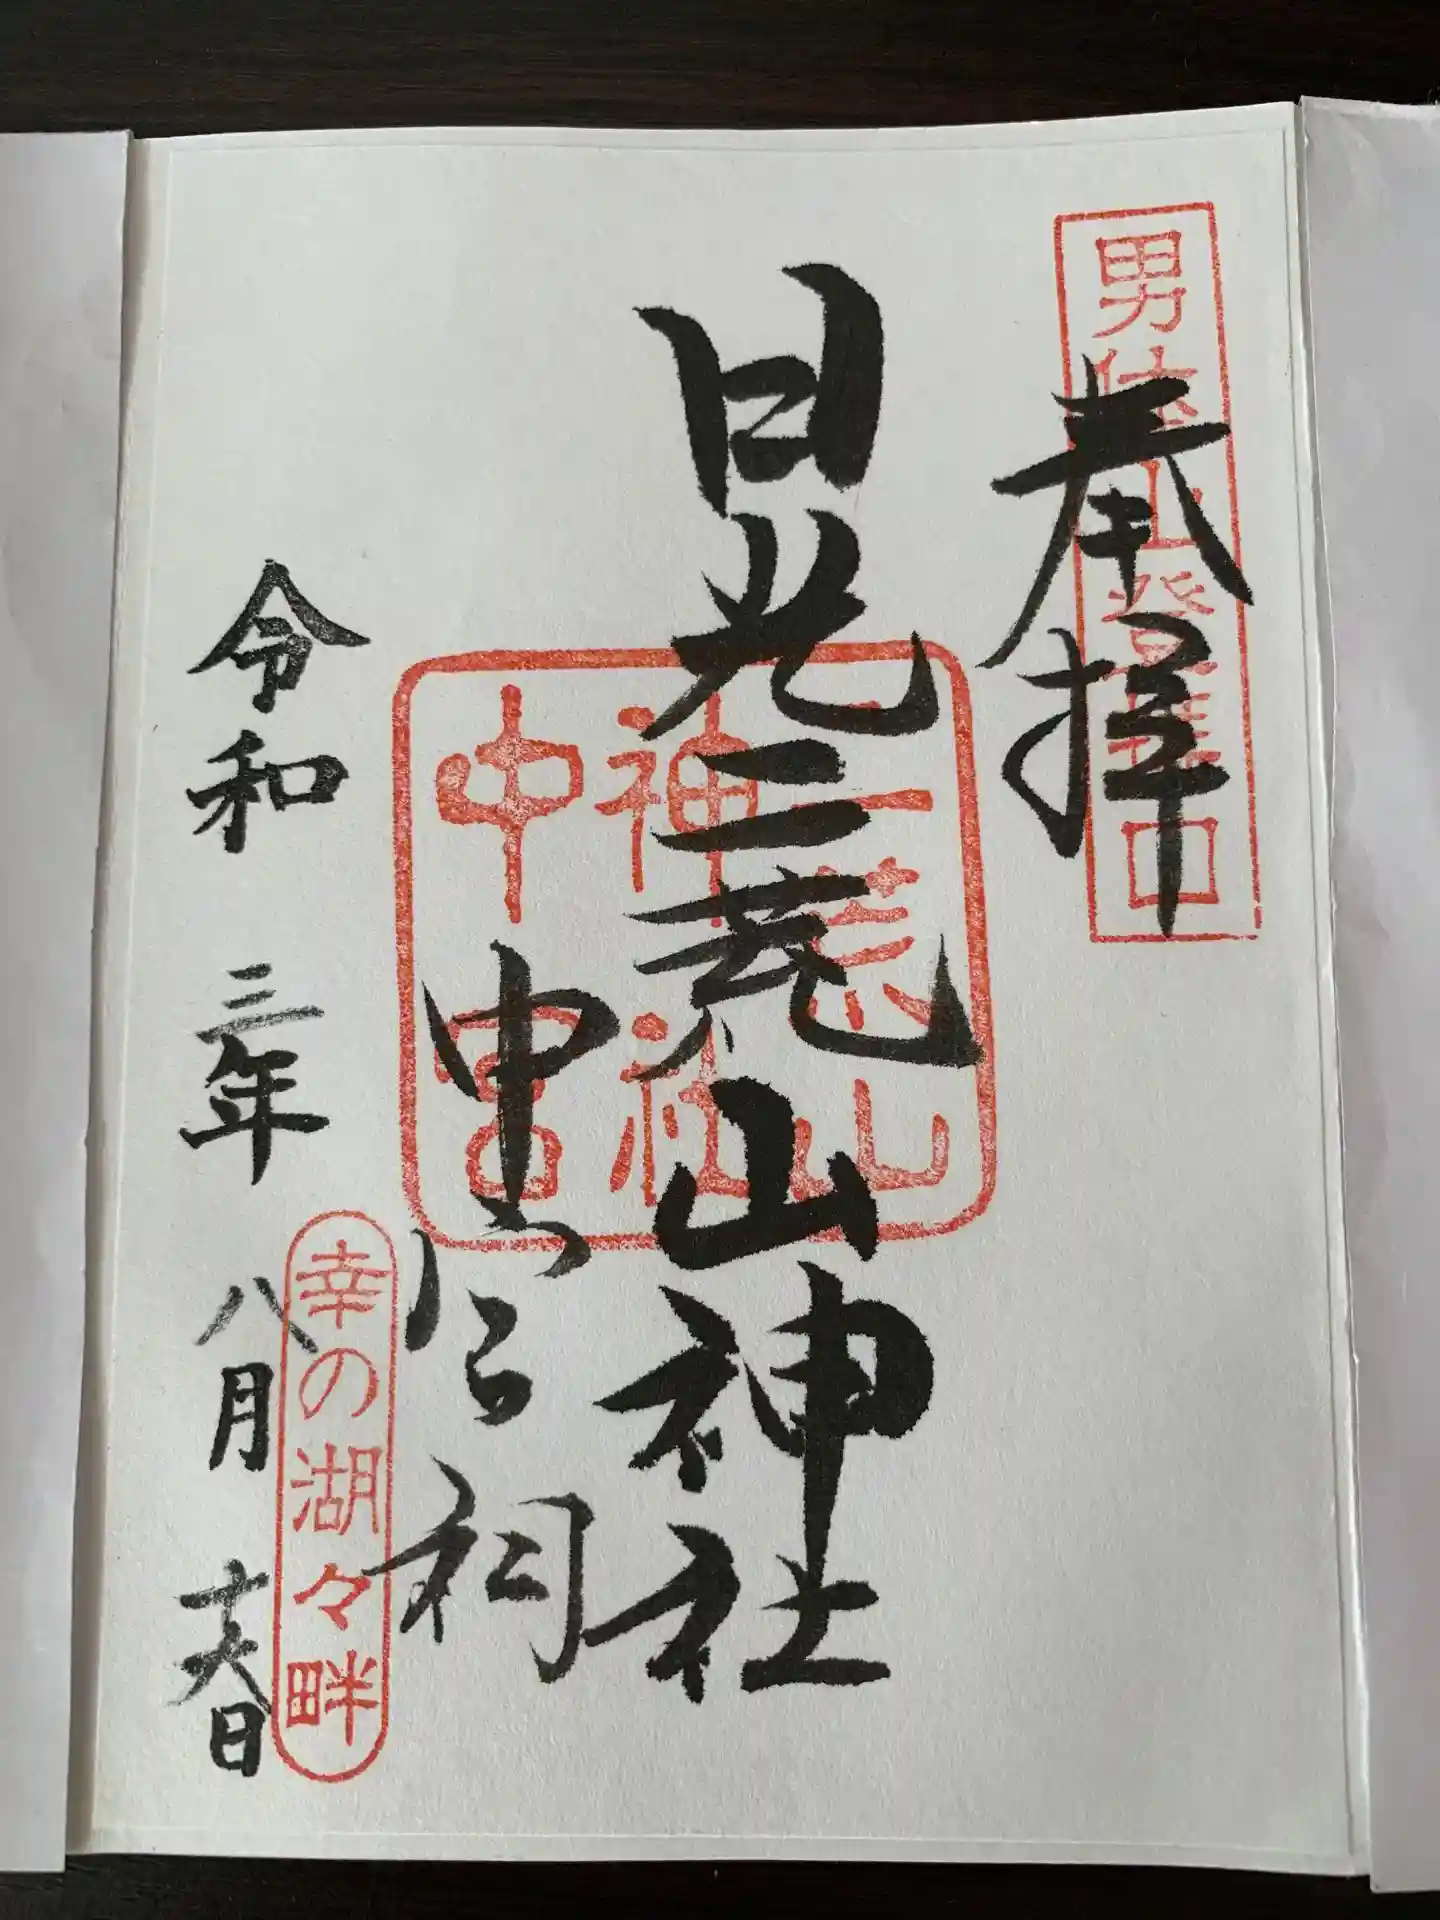 男体山登拝口
奉拝
日光二荒山神社
二荒山
神社
中宮
中宮祠
幸の湖々畔
令和三年八月十六日